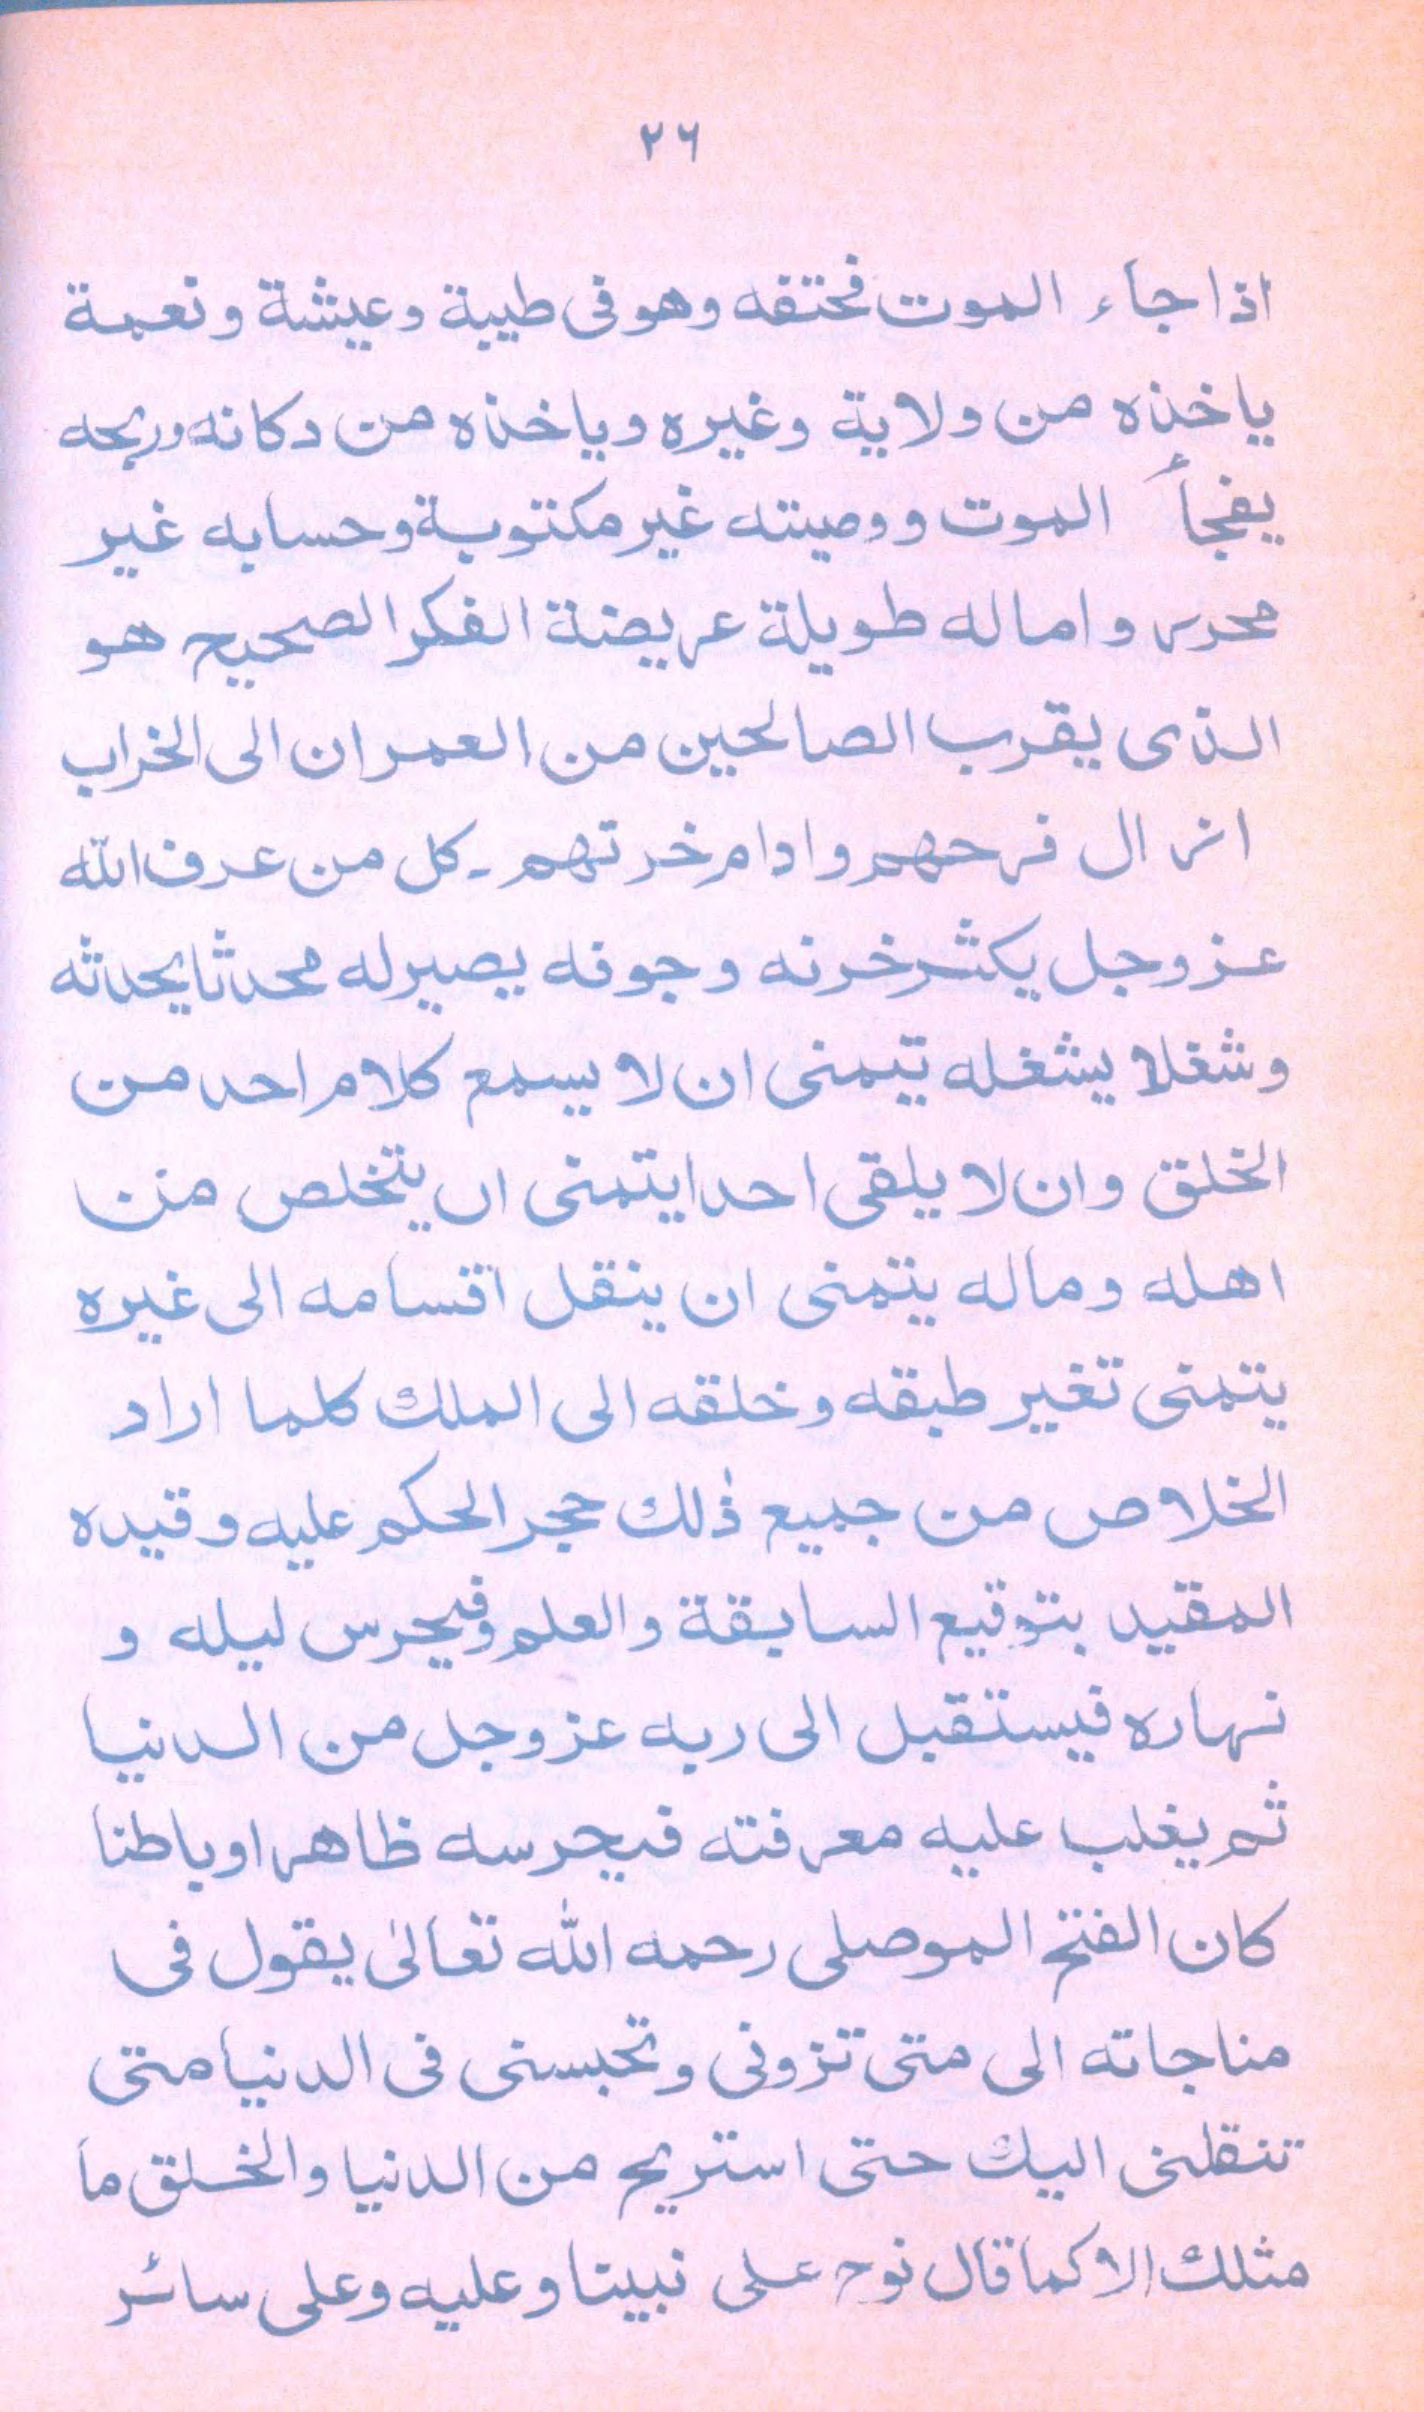 ٢٦
اذا جاء الموت فختقه وهو فى طيبة وعيشة ونعمة
ياخذه من ولاية وغيره وياخذه من دكانه وربحه
يفجأ الموت ووصيته غير مكتوبة وحسابه غير
محرر واماله طويلة عريضة الفكر الصحيح هو
الذى يقرب الصالحين من العمران الى الخراب
ازال فرحهم وادام خرتهم ـ كل من عرف الله
عز وجل يكثر خرنه وجوفه يصير له محدثا يحدثه
وشغلا يشغله تيمنى ان لا يسمع كلام احد من
الخلق وان لا يلقى احدا يتمنى ان يتخلص من
اهله وماله يتمنى ان ينقل اقسامه الى غيره
يتمنى تغير طبقه وخلقه الى الملك كلما اراد
الخلاص من جميع ذٰلك حجر الحكم عليه وقيده
المقيد بتوقيع السابقة والعلم وفيحرس ليله و
نهاره فيستقبل الى ربه عز وجل من الدنيا
ثم يغلب عليه معرفته فيحرسه ظاهرا وباطنا
كان الفتح الموصلى رحمه الله تعالىٰ يقول فى
مناجاته الى متى تزونى وتحبسنى فى الدنيا متى
تنقلنى اليك حتى استريح من الدنيا والخلق ما
مثلك الا كما قال نوح على نبينا وعليه وعلى سائر